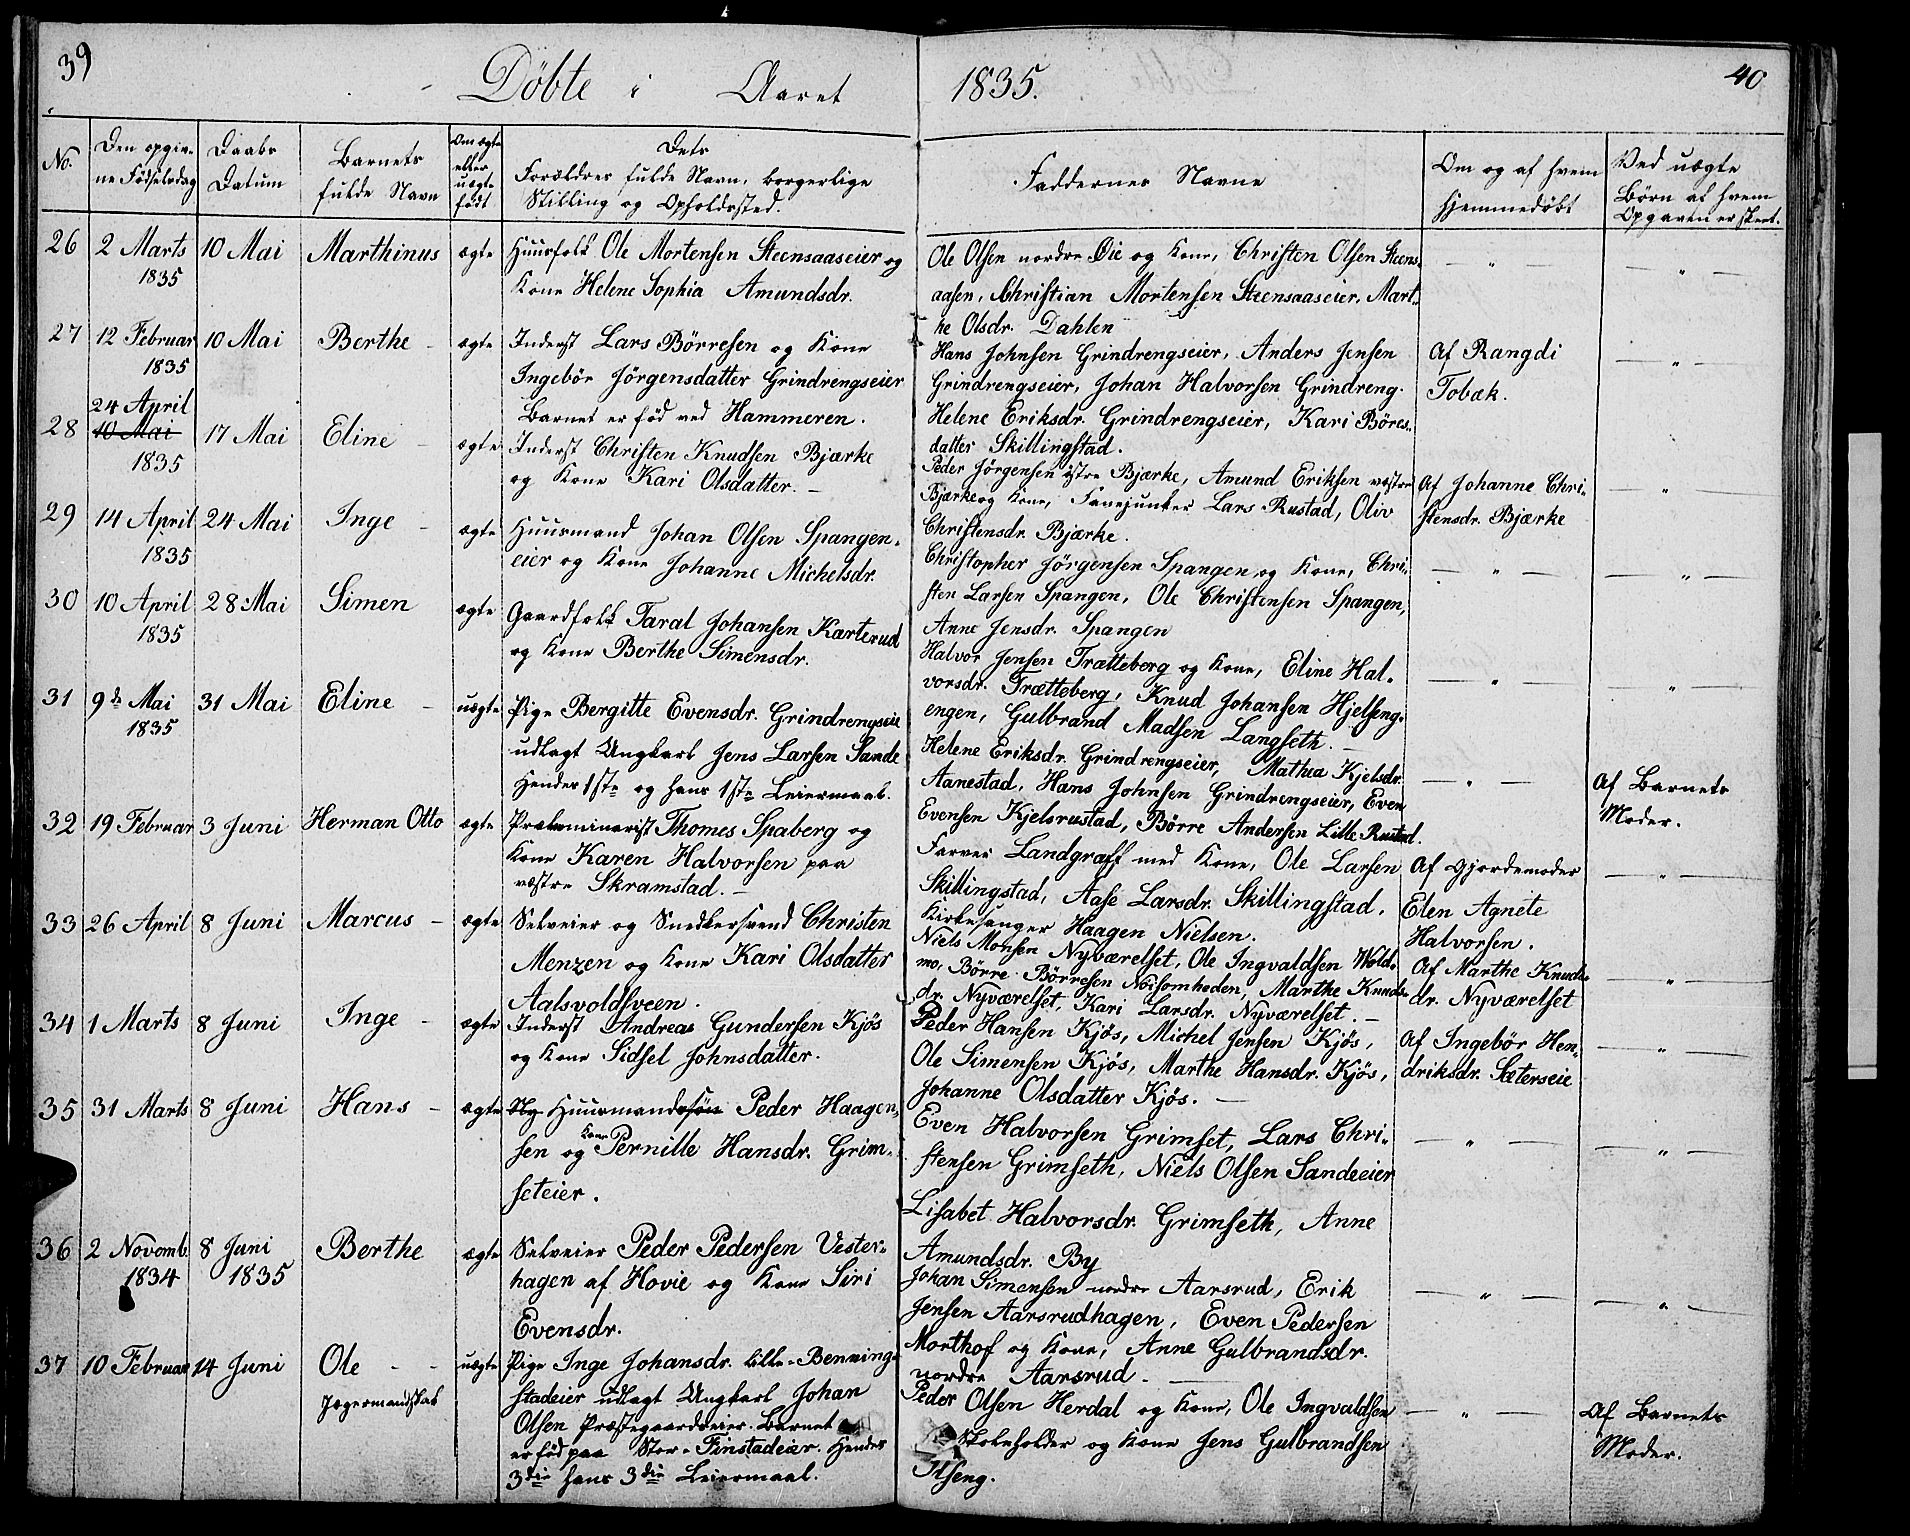 39
Döbte i Aaret 1835.
40
No.
Den opgiv-
ne Födselsdag
Daabs
Datum
Barnets
fulde Navn
Om ægte
eller
uægte
födt
Dets
Forældres fulde Navn, borgerlige
Stilling og Opholdssted.
Faddernes Navne
Om og af hvem
hjemmedöbt
Ved uægte
Börn af hvem
Opgaven er skeet.
26 2 Marts 10 Mai Marthinus ægte Huusfolk Ole Mortensen Steensaaseier og
1835 Kone Helene Sophia Amundsdr.
Ole Olsen nordre Öie og Kone, Christen Olsen Steens-
aasen, Christian Mortensen Steensaaseier, Mart-
he Olsdr. Dahlen
— " — — " —
27 12 Februar 10 Mai Berthe - ægte Inderst Lars Börresen og Kone
1835 Ingebör Jörgensdatter Grindrengseier
Barnet er föd ved Hammeren.
Hans Johnsen Grindrengseier, Anders Jensen
Grindrengseier, Johan Halvorsen Grindreng.
Helene Eriksdr. Grindrengseier, Kari Böres-
datter Skillingstad.
Af Rangdi
Tobæk.
— " —
24 April
28 10 Mai 17 Mai Eline - ægte Inderst Christen Knudsen Bjærke
1835 og Kone Kari Olsdatter. -
Peder Jörgensen östre Bjærke, Amund Eriksen vestre
Bjærke og Kone, Fanejunker Lars Rustad, Oliv
Christensdr. Bjærke.
Af Johanne Chri-
stensdr. Bjærke
— " —
29 14 April 24 Mai Inge - ægte Huusmand Johan Olsen Spangen-
1835 eier og Kone Johanne Michelsdr.
Christopher Jörgensen Spangen og Kone, Chri-
sten Larsen Spangen, Ole Christensen Spangen,
Anne Jensdr. Spangen
— " — — " —
30 10 April 28 Mai Simen ægte Gaardfolk Taral Johansen Karterud
1835 og Kone Berthe Simensdr.
Halvor Jensen Trætteberg og Kone, Eline Hal-
vorsdr. Trætteberg, Knud Johansen Hjelseng-
engen, Gulbrand Madsen Langseth. -
— " — — " —
31 9de Mai 31 Mai Eline - uægte Pige Bergitte Evensdr. Grindrengseie
1835 udlagt Ungkarl Jens Larsen Sande
Hendes 1ste og hans 1ste Leiermaal.
Helene Eriksdr. Grindrengseier, Mathea Kjelsdr.
Aanestad, Hans Johnsen Grindrengseier, Even
Evensen Kjelsrustad, Börre Andersen Lille Rustad.
— " —
Af Barnets
Moder.
32 19 Februar 3 Juni Herman Otto ægte Præliminarist Thomes Spaberg og
Kone Karen Halvorsen paa
vestre Skramstad. -
Farver Landgraff med Kone, Ole Larsen
Skillingstad, Aase Larsdr. Skillingstad.
Kirkesanger Haagen Nielsen.
Af Gjordemoder
Elen Agnete
Halvorsen.
— " —
33 26 April 8 Juni Marcus - ægte Selveier og Snedkersvend Christen
Menzen og Kone Kari Olsdatter
Aalsvoldsveen.
Niels Monsen Nyværelset, Ole Ingvaldsen Wold-
mo, Börre Börresen Noisomheden, Marthe Knuds-
dr. Nyværelset, Kari Larsdr. Nyværelset. -
Af Marthe Knuds-
dr. Nyværelset
— " —
34 1 Marts 8 Juni Inge - ægte Inderst Andreas Gundersen Kjös
og Kone Sidsel Johnsdatter.
Peder Hansen Kjös, Michel Jensen Kjös,
Ole Simensen Kjös, Marthe Hansdr. Kjös,
Johanne Olsdatter Kjös. -
Af Ingebör Hen-
driksdr. Sæterseie
— " —
35 31 Marts 8 Juni Hans - ægte Huusmandssön Peder Haagen-
sen og Kone Pernille Hansdr. Grim-
seteier.
Even Halvorsen Grimset, Lars Chri-
stensen Grimseth, Niels Olsen Sandeeier
Lisabet Halvorsdr. Grimseth, Anne
Amundsdr. By
— " — — " —
36 2 Novemb. 8 Juni Berthe ægte Selveier Peder Pedersen Vester-
1834 1835 hagen af Hovie og Kone Siri
Evensdr.
Johan Simensen nordre Aarsrud, Erik
Jensen Aarsrudhagen, Even Pedersen
Morthof og Kone, Anne Gulbrandsdr.
nordre Aarsrud. -
— " — — " —
37 10 Februar 14 Juni Ole - - uægte Pige Inge Johansdr. Lille-Benning-
Jegermandskab stadeier udlagt Ungkarl Johan
Olsen Præstegaardseier. Barnet
er föd paa Stor-Finstadeier. Hendes
3die hans 3die Leiermaal.
Peder Olsen Herdal og Kone, Ole Ingvaldsen
Skoleholder og Kone Jens Gulbrandsen
Ilseng.
— " —
Af Barnets
Moder.